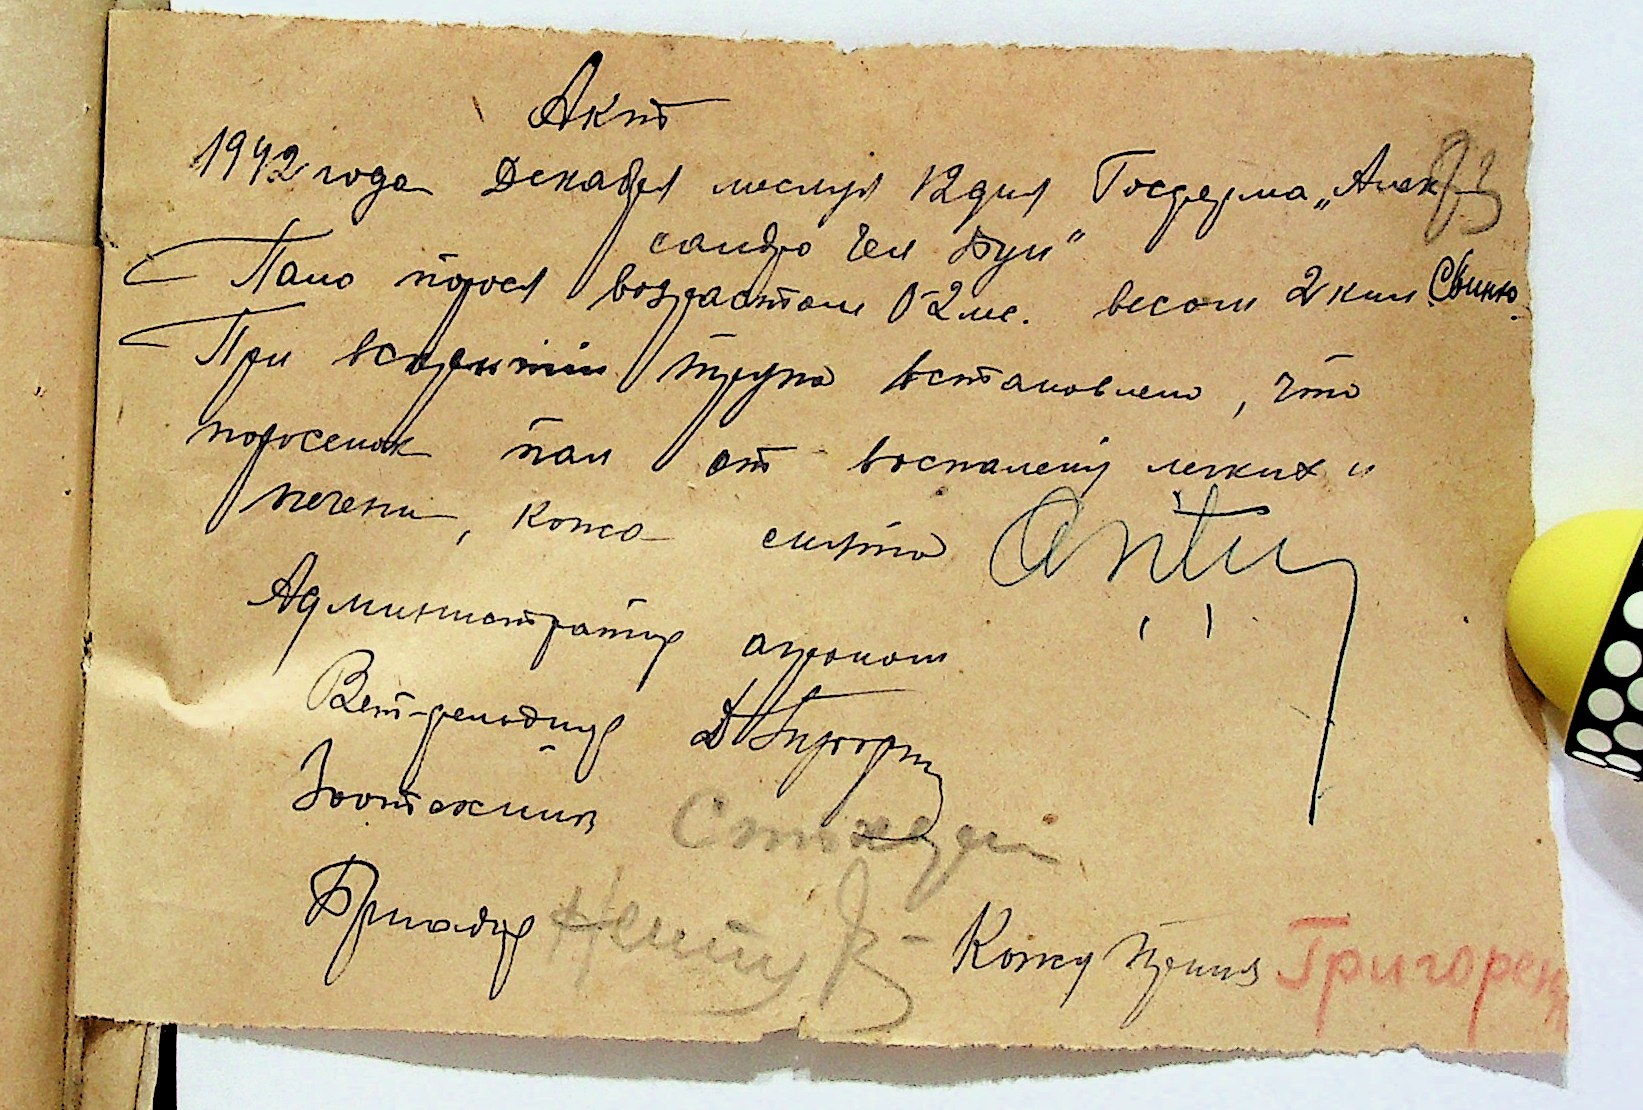 Акт
1942 года Декабря месяца 12 дня Госферма „Алек
сандро Чел Бун"
Пало порося возрастом 0-2 мс. весом 2 кил Свинью.
При вскрытии трупа встановлено, что
поросенок пал от воспалены легких и
печени, кожа снята
Администратор агроном
Вет-фельдшер
Зоотехник
Бригадир
Кожу принял Григорен